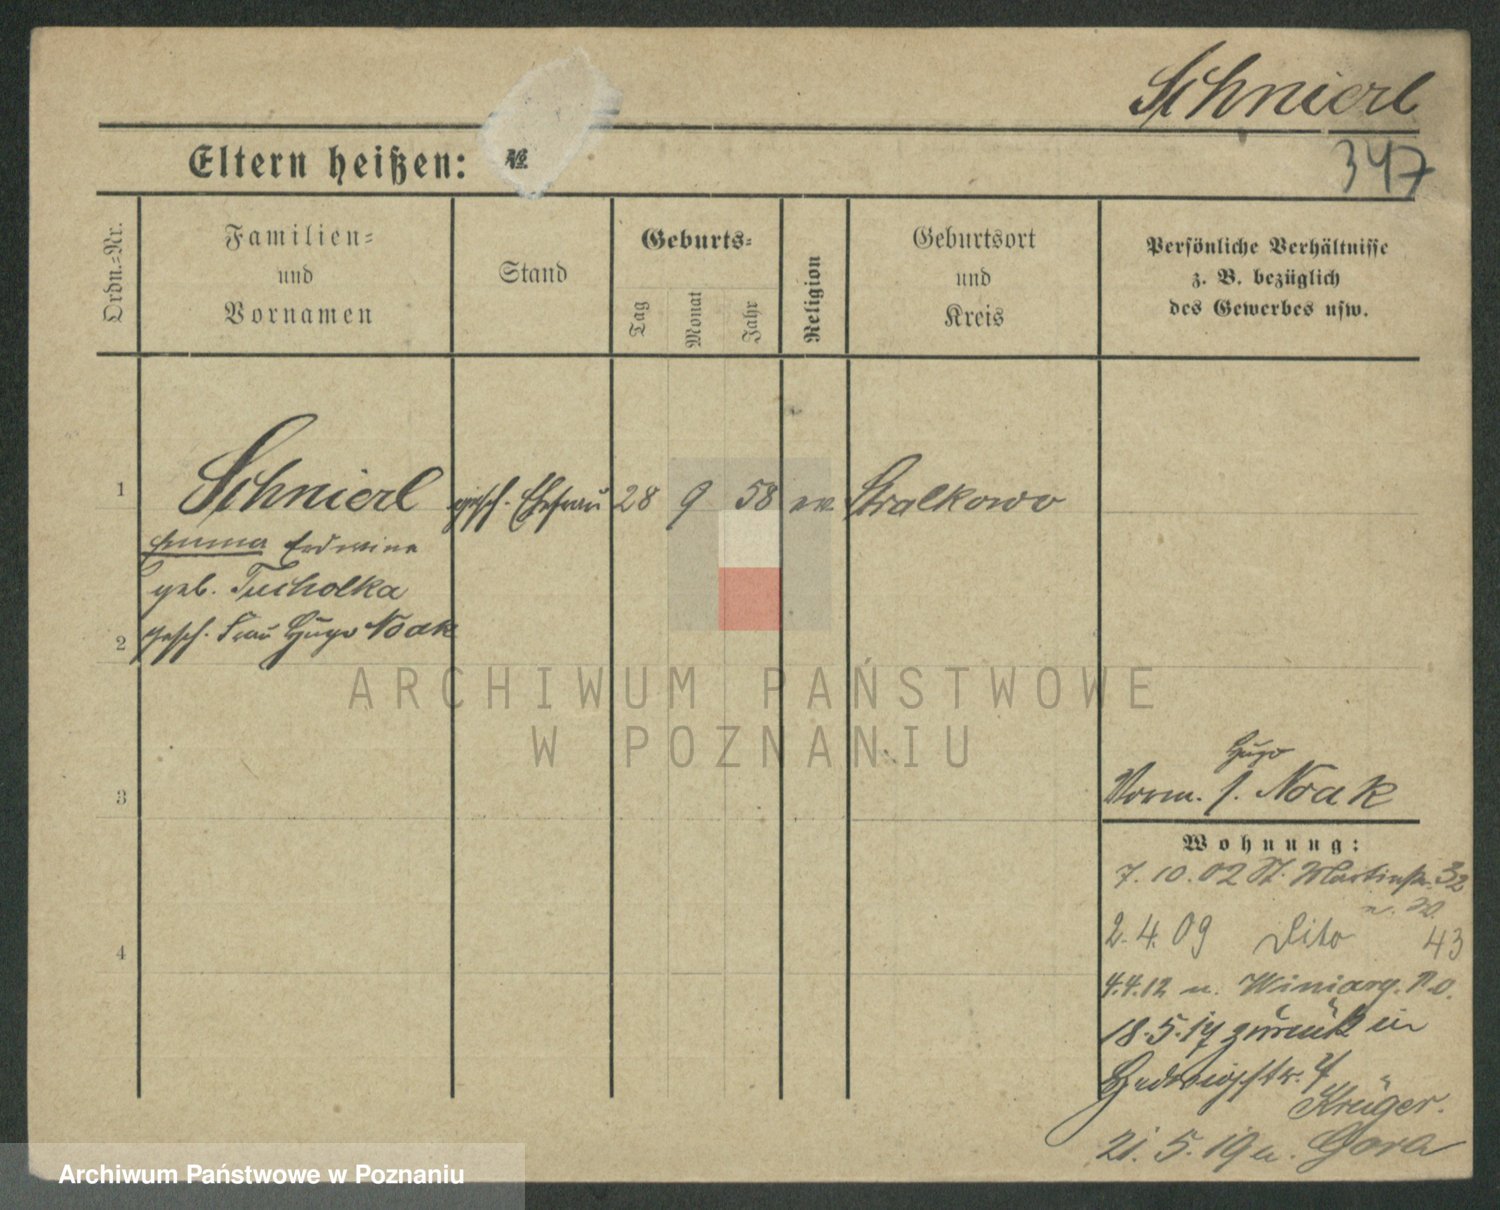 Schnierl
Eltern heißen: №
347
Ordn.=Nr.
Familien=
und
Vornamen
Stand
Geburts=
Tag
Monat
Jahr
Religion
Geburtsort
und
Kreis
Persönliche Verhältnisse
z. B. bezüglich
des Gewerbes usw.
1 Schnierl gesch. Ehefrau 28 9 58 ev. Stralkowo
Emma Erdwine
geb. Tucholka
2 gesch. Frau Hugo Noak
ARCHIWUM PAŃSTWOWE
W POZNANIU
Hugo
3 Vorm. f. Noak
Wohnung:
7. 10. 02 St. Martinstr. 32
2. 4. 09 Dito 43
4
4.4.12 n. Winiary. P.O.
18.5.17 zurück in
Hedwigstr. 4
Krüger.
21. 5. 19 n. Gora
Archiwum Państwowe w Poznaniu